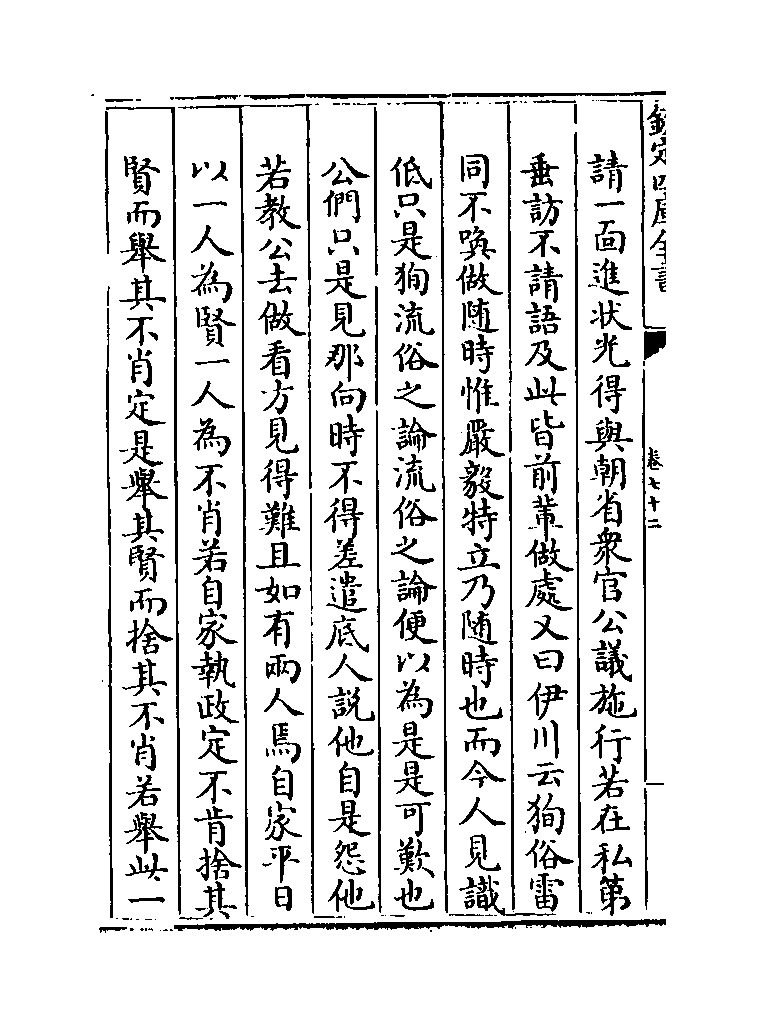 欽定四庫全書
卷七十二
請一面進状光得與朝省衆官公議施行若在私第
垂訪不請語及此皆前輩做處又曰伊川云狥俗雷
同不喚做随時惟嚴毅特立乃随時也而今人見識
低只是狥流俗之論流俗之論便以為是是可歎也
公們只是見那向時不得差遣底人說他自是怨他
若教公去做看方見得難且如有兩人焉自家平日
以一人為賢一人為不肖若自家執政定不肯捨其
賢而舉其不肖定是舉其賢而捨其不肖若舉此一